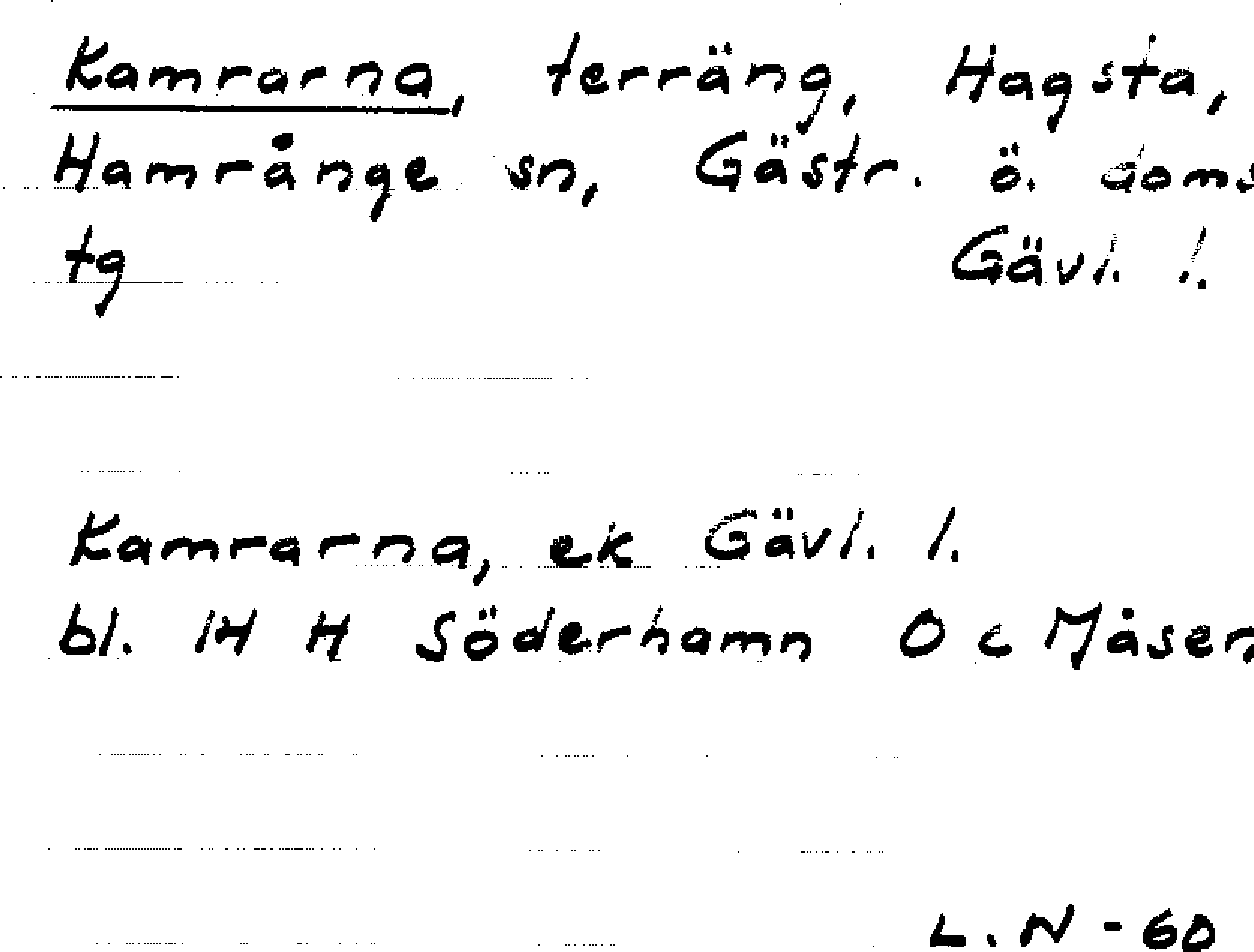 Kamrarna, terräng, Hagsta,
Hamrånge sn, Gästr. ö. doms
tg Gävl. l.
Kamrarna, ek Gävl. l.
bl. 14 H Söderhamn 0 c Måsen
L. N - 60